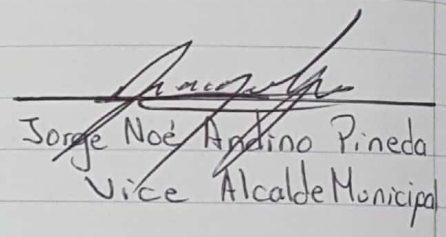 Jorge Noé Andino Pineda
Vice Alcalde Municipal